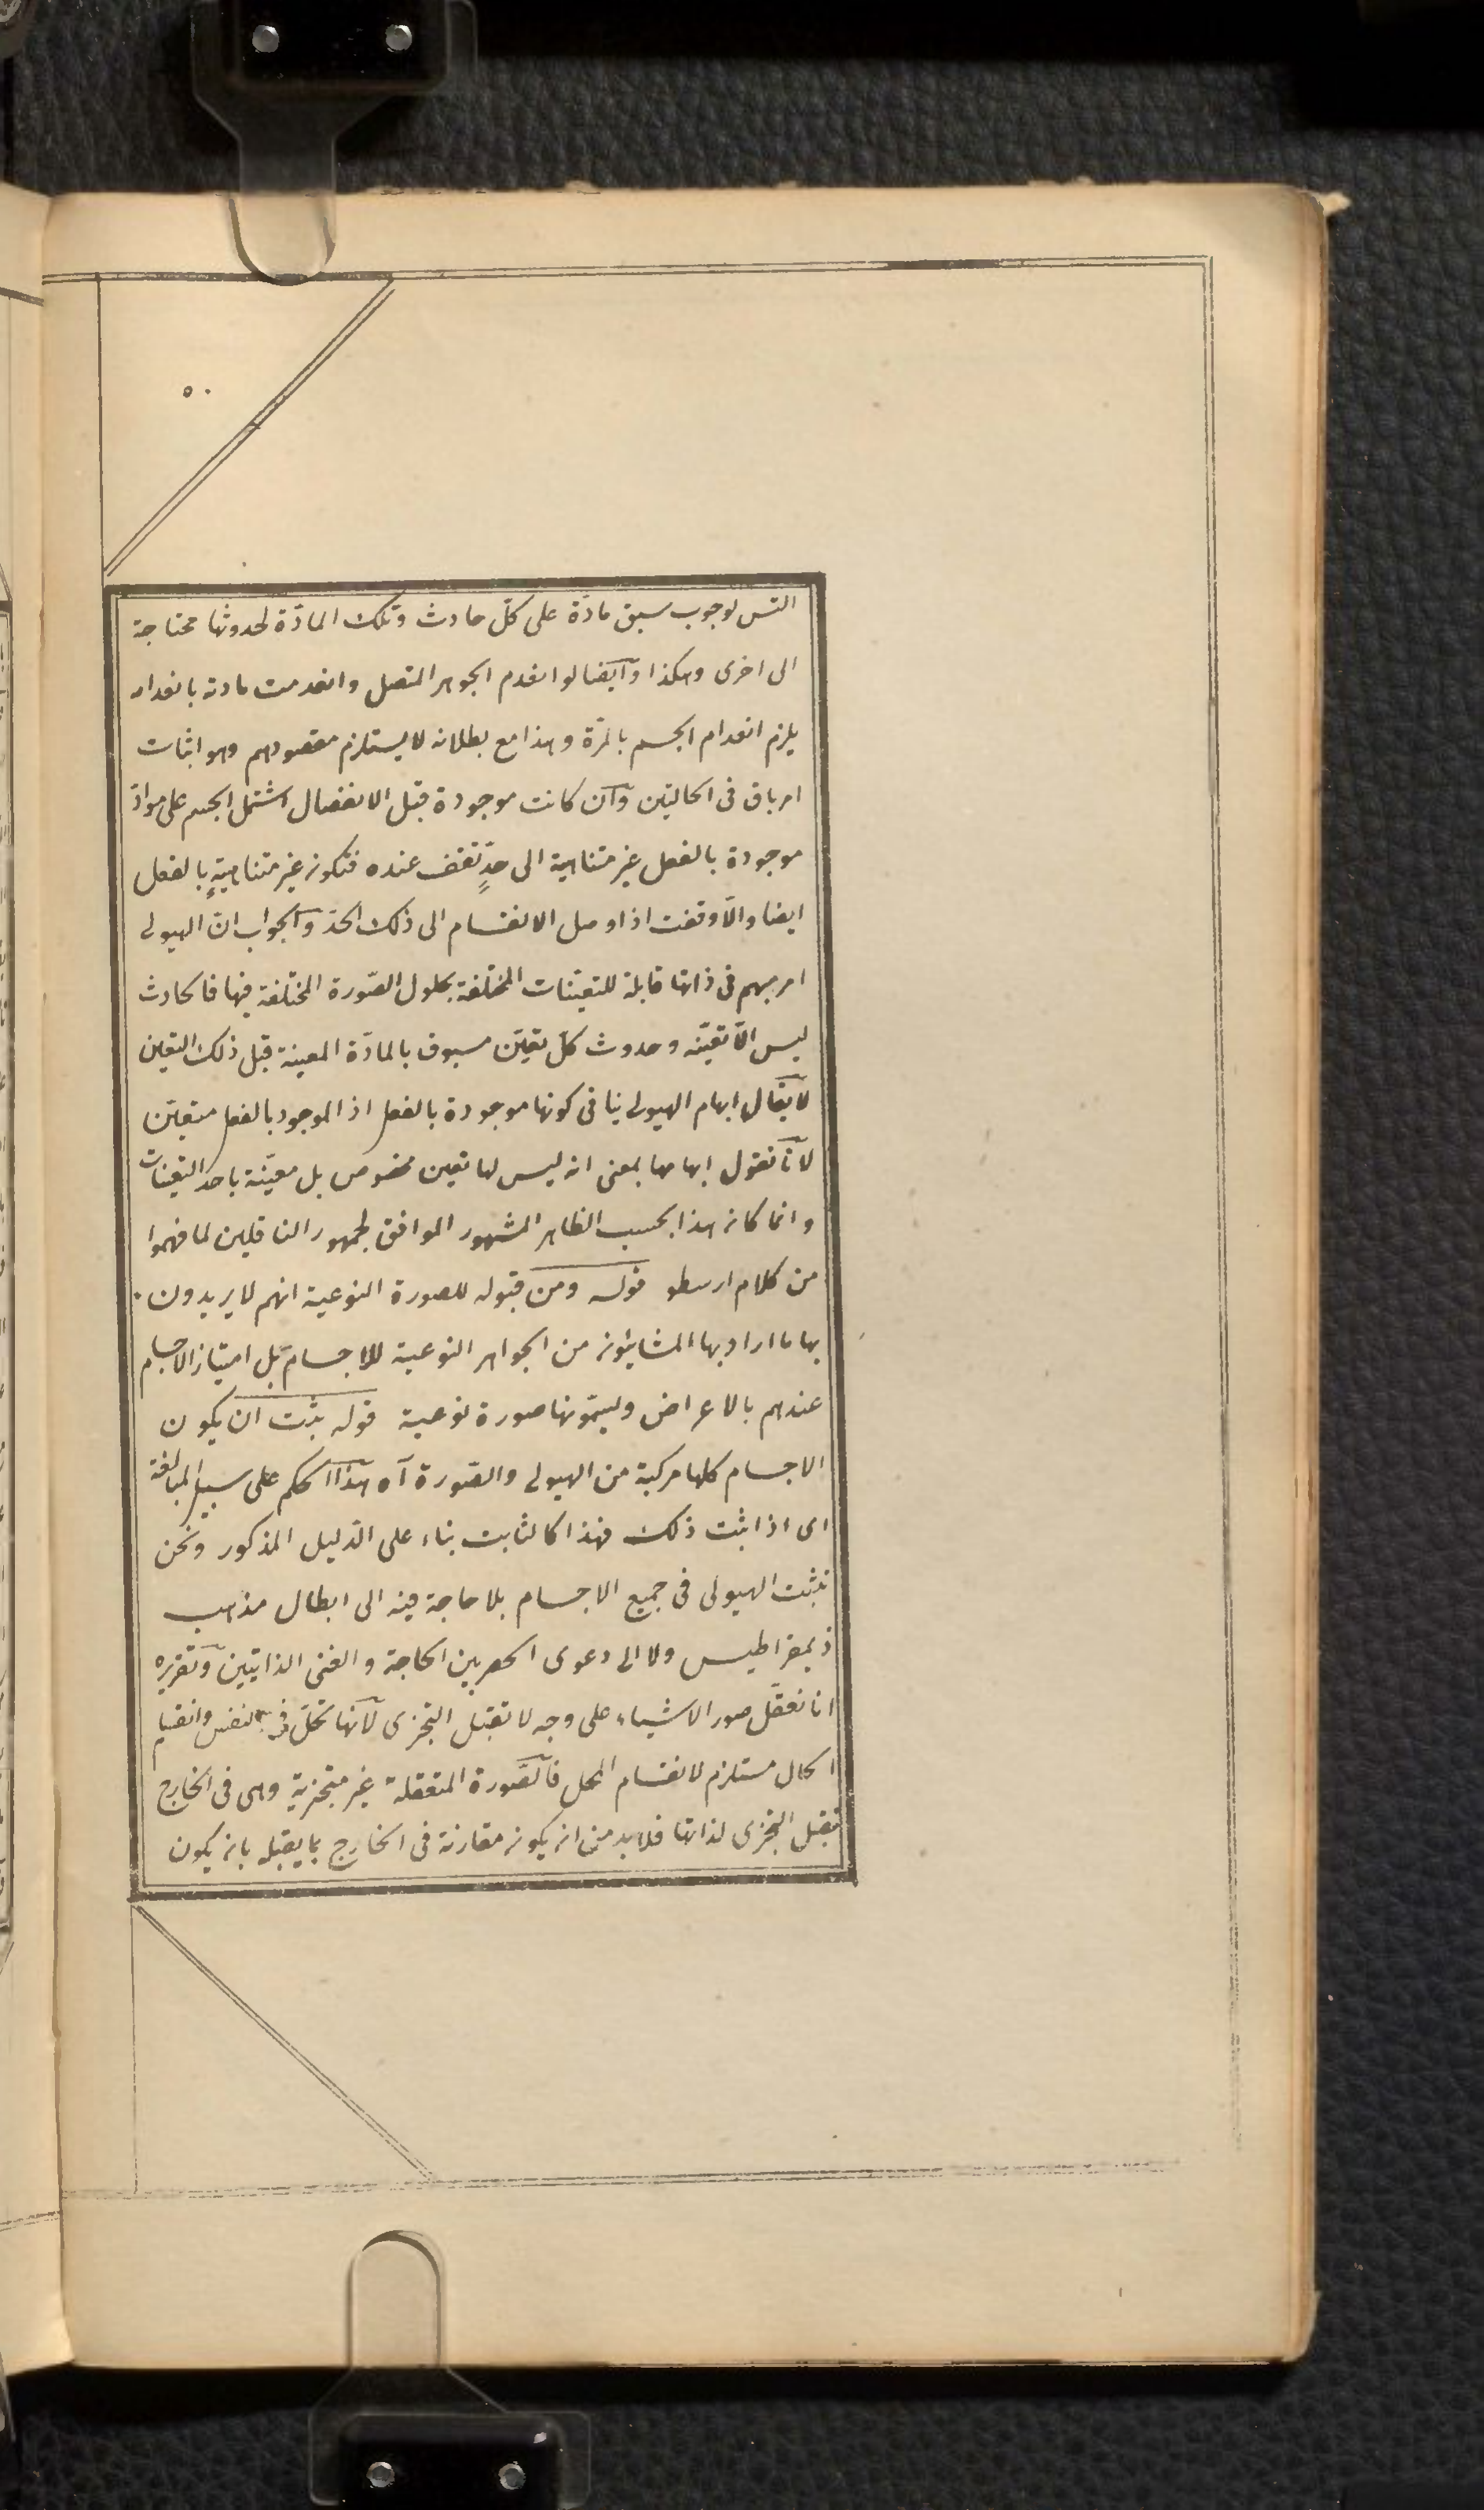 ٥٠
التس لوجوب سبق مادّة على كلّ حادث وتلك المادّة لحدوثها محتاجة
الى اخرى وهكذا وآيضا لو انعدم الجوهر المتصل وانعدمت مادته بانعدامه
يلزم انعدام الجسم بالمرّة وهذا مع بطلانه لا يستلزم مقصودهم وهو اثبات
امر باق فى الحالتين وآن كانت موجودة قبل الانفصال اشتمل الجسم على موادّ
موجودة بالفعل غير متناهية الى حدٍّ تقف عنده فتكون غير متناهيةٍ بالفعل
ايضا والّا وقفت اذا وصل الانقسام الى ذلك الحدّ وآلجواب انّ الهيولى
امر مبهم فى ذاتها قابلة للتعيّنات المختلفة بحلول الصّورة المختلفة فيها فالحادث
ليس الّا تعيّنه وحدوث كلّ تعيّن مسبوق بالمادّة المعينة قبل ذلك التعين
لا يقال ابهام الهيولى ينافى كونها موجودة بالفعل اذ الموجود بالفعل متعيّن
لآنّا نقول ابهامها بمعنى انه ليس لها تعين مخصوص بل معيّنة باحد التعينات
وانما كان هذا بحسب الظاهر المشهور الموافق لجمهور الناقلين لما فهموا
من كلام ارسطو قوله ومن قبوله للصورة النوعية انهم لا يريدون
بها ما اراد بها المشائون من الجواهر النوعية للاجسام بَل امتياز الاجسام
عندهم بالاعراض ويسمّونها صورة نوعية قوله يثبت ان يكون
الاجسام كلها مركبة من الهيولى والصّورة آه هذا الحكم على سبيل المبالغة
اى اذا ثبت ذلك فهذا كالثابت بناء على الدّليل المذكور ونحن
نثبت الهيولى فى جميع الاجسام بلا حاجة فيه الى ابطال مذهب
ذيمقراطيس ولا الى دعوى الحصر بين الحاجة والغنى الذاتيين وتقريره
انا نعقّل صور الاشياء على وجه لا تقبل التجزى لآنّها تحلّ فى النفس وانقسام
الحال مستلزم لانقسام المحل فآلصّورة المتعقلة غير متجزية وهى فى الخارج
تقبل التجزى لذاتها فلا بد من ان يكون مقارنة فى الخارج بما يقبله بان يكون